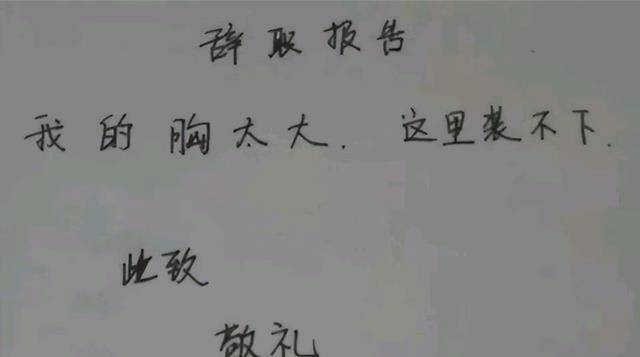 辞职报告
我的胸太大. 这里装不下.
此致
敬礼